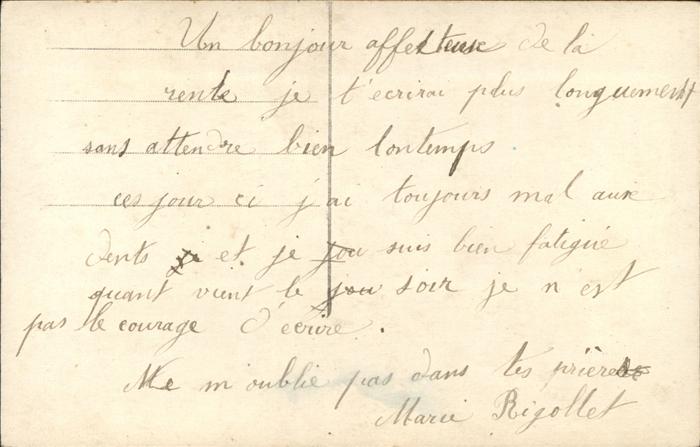 Un bonjour affecteuse de la
rente je t'ecrirai plus longuement
sans attendre bien lontemps
ces jour ci j ai toujours mal aux
dents et je suis bien fatigué
quant vient le soir je n est
pas le courage d'écrire.
Me m'oublie pas dans tes prières
Marie Rigollet